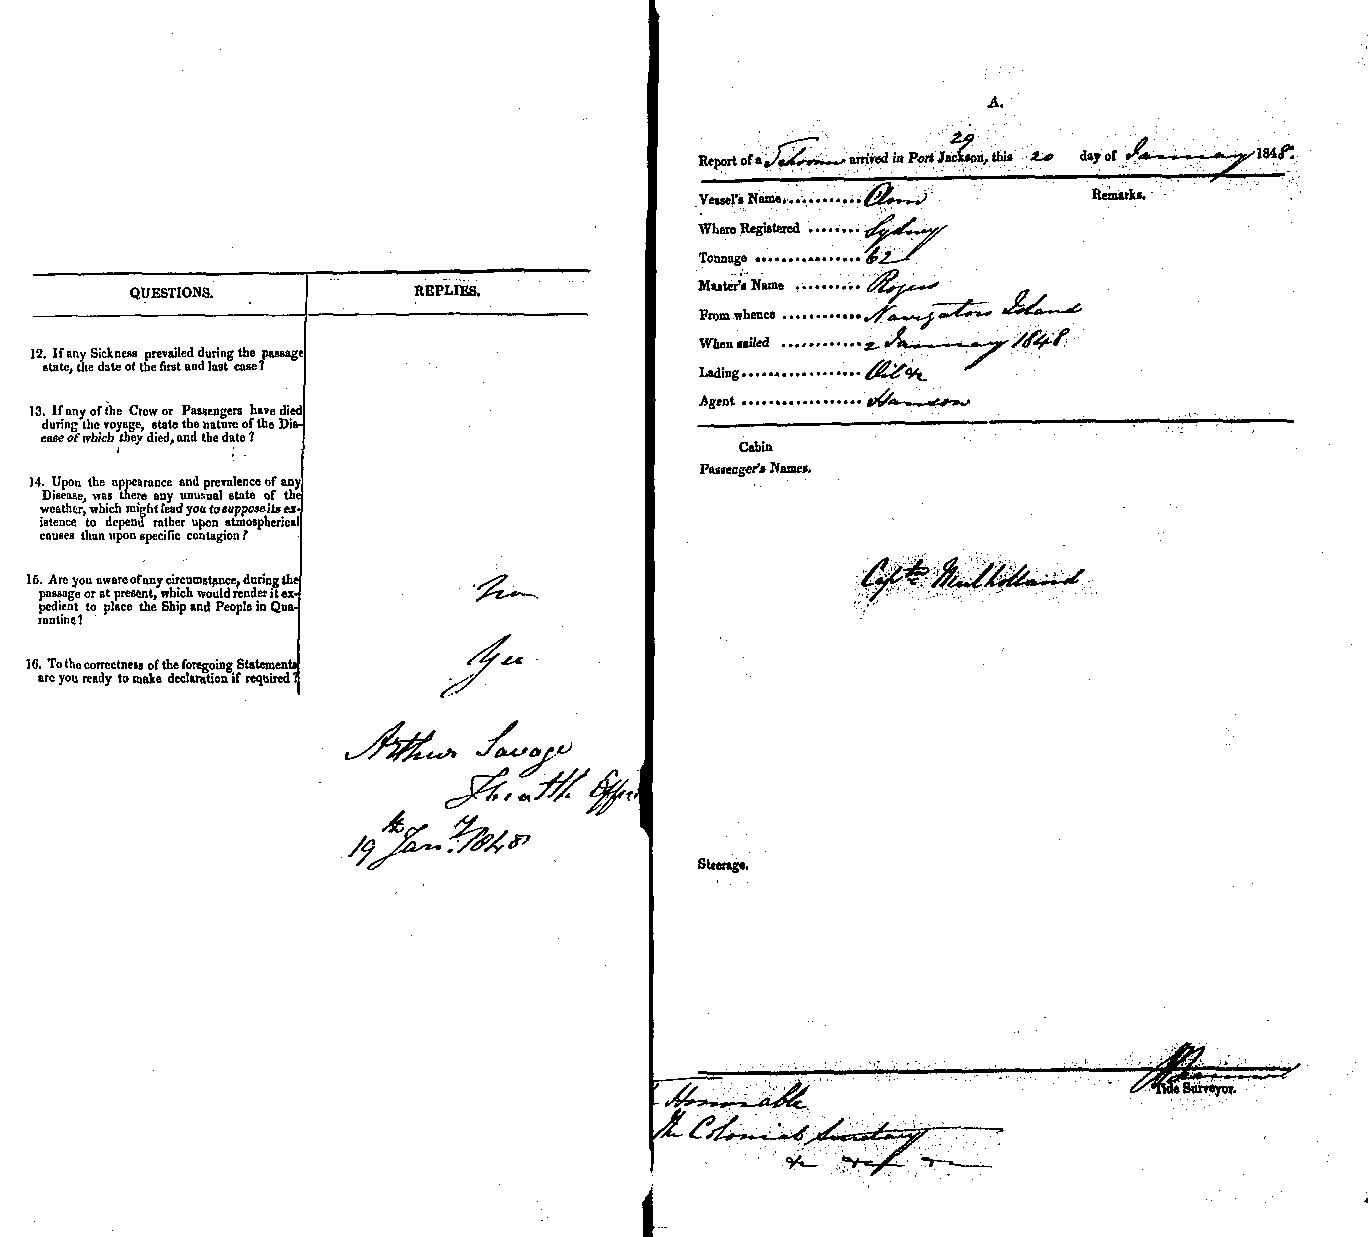 QUESTIONS.
REPLIES.
12. If any Sickness prevailed during the passage
state, the date of the first and last case?
13. If any of the Crew or Passengers have died
during the voyage, state the nature of the Dis-
ease of which they died, and the date?
14. Upon the appearance and prevalence of any
Disease, was there any unusual state of the
weather, which might lead you to suppose its ex-
istence to depend rather upon atmospherical
causes than upon specific contagion?
15. Are you aware of any circumstance, during the
passage or at present, which would render it ex-
pedient to place the Ship and People in Qua-
rantine?
16. To the correctness of the foregoing Statements
are you ready to make declaration if required?
Yes
Arthur Savage
Health Officer
19th Jany. 1848
A.
29
Report of a Schooner arrived in Port Jackson, this 20 day of January 1848.
Vessel's Name
Remarks.
Where Registered Sydney
Tonnage 62
Master's Name Rogers
From whence Navigators Island
When sailed 2 January 1848
Lading Oil &c
Agent
Cabin
Passenger's Names.
Captn Mulholland
Steerage.
Tide Surveyor.
Honorable
The Colonial Secretary
&c &c &c